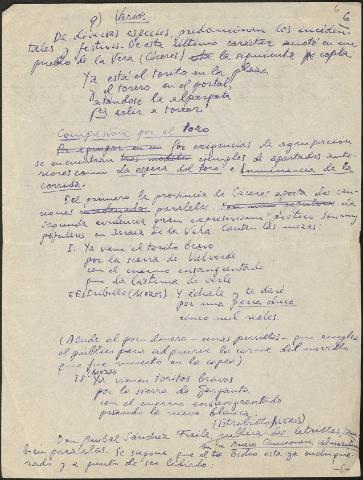 6
g) Varios
De diversas especies, predominan los acciden-
tales y festivos. De este último carácter anoté en un
pueblo de la Vera (Cáceres) la siguiente copla
Ya está el torito en la plaza
el torero en el portal,
atándose la alpargata
para salir a torear.
Compasión por el toro
Por exigencias de agrupación
se encuentran ejemplos de apartados ante-
riores como La espera del toro e Inminencia de la
corrida.
Del primero la provincia de Cáceres aporta dos can-
ciones paralelas.
segunda evidencia gran expresivismo poético son muy
populares en Jeraiz de la Vera. Cantan los mozas:
I. Ya viene el torito bravo
por la sierra de Valverde
con el cuerno ensangrentado
que da lástima de verle
Estribillo (Mozos) Y échale y te daré
por una perra chica
cinco mil reales.
(Alude al poco dinero - unas perrillas - que
el público para adquirir la carne del novillo
que fue muerto en la capea)
II. Ya vienen toritos bravos
por la sierra de Garganta
con el cuerno ensangrentado
pisando la nieve blanca
(Estribillo Mozos)
Don Aníbal Sánchez Fraile, publica dos letrillas, tam-
bién paralelas. Se supone que el Toro está ya enchique-
rado y a punto de ser lidiado: